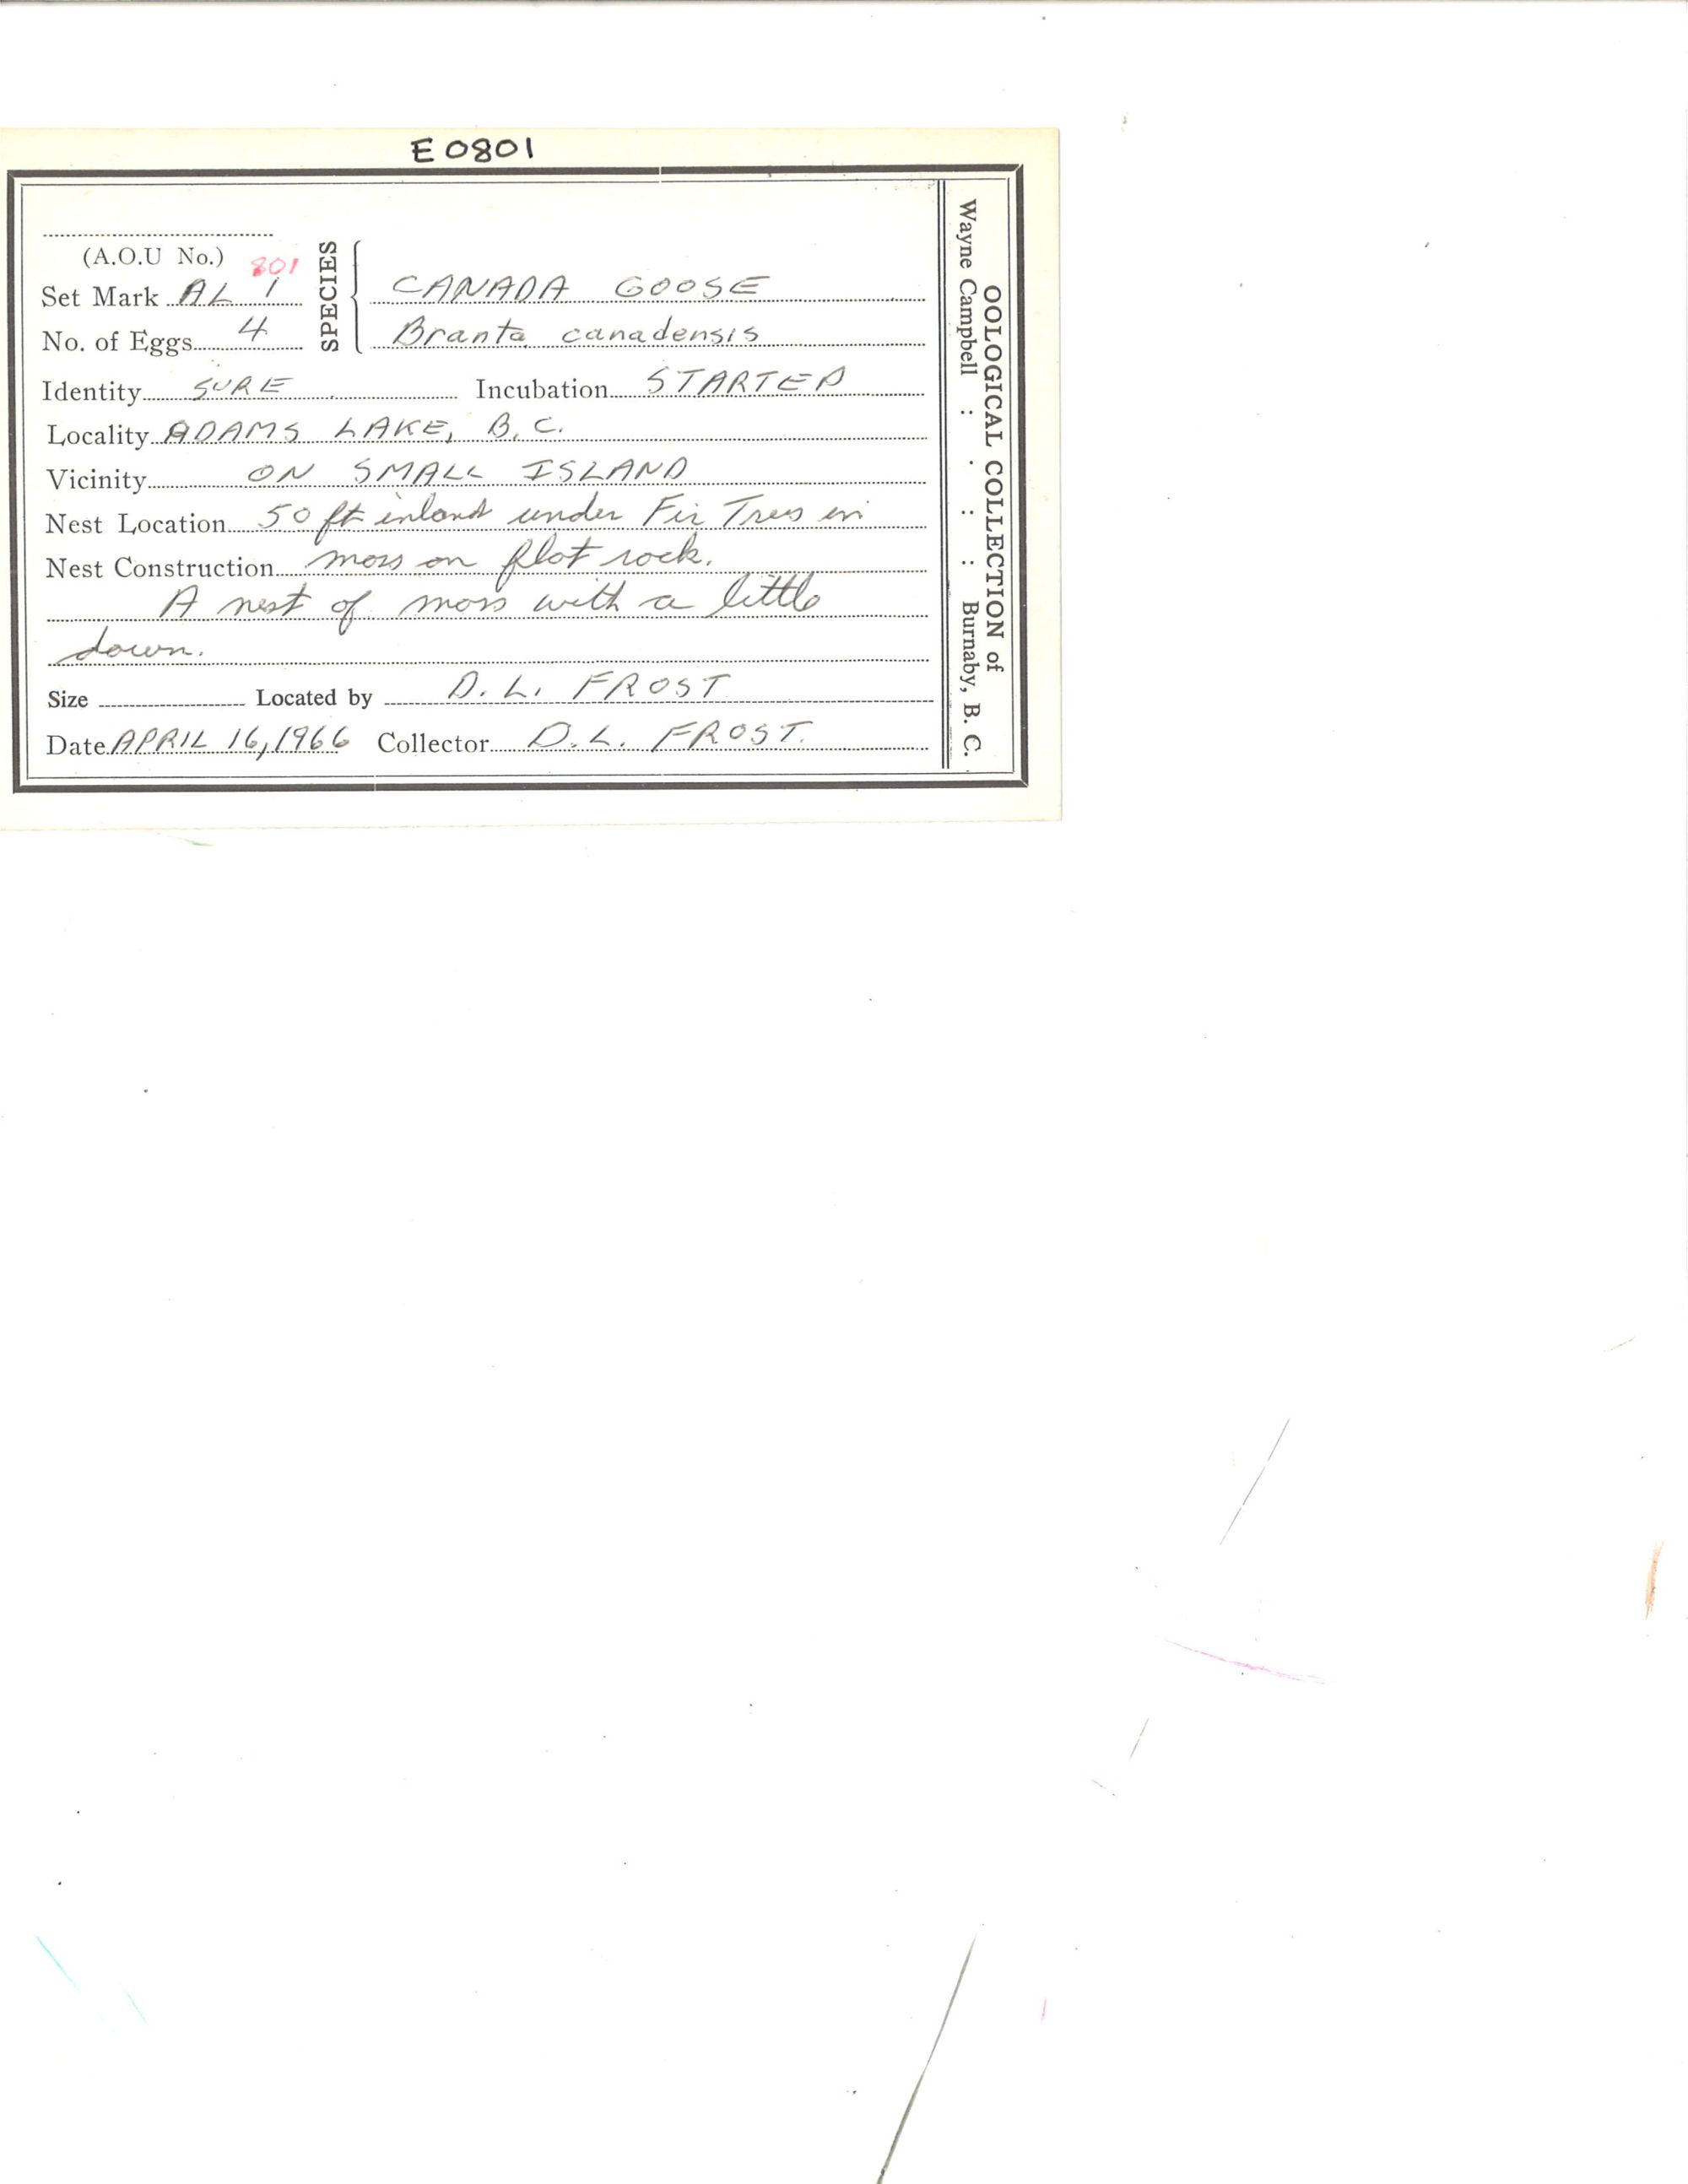 E0801
(A.O.U No.) 801
Set Mark AL 1
No. of Eggs 4
SPECIES
CANADA GOOSE
Branta canadensis
Identity SURE Incubation STARTED
Locality ADAMS LAKE, B.C.
Vicinity ON SMALL ISLAND
Nest Location 50 ft inland under Fir Trees in
Nest Construction moss on flat rock.
A nest of moss with a little
down.
Size Located by D. L. FROST
Date APRIL 16, 1966 Collector D.L. FROST.
OOLOGICAL COLLECTION of
Wayne Campbell : : : Burnaby, B. C.